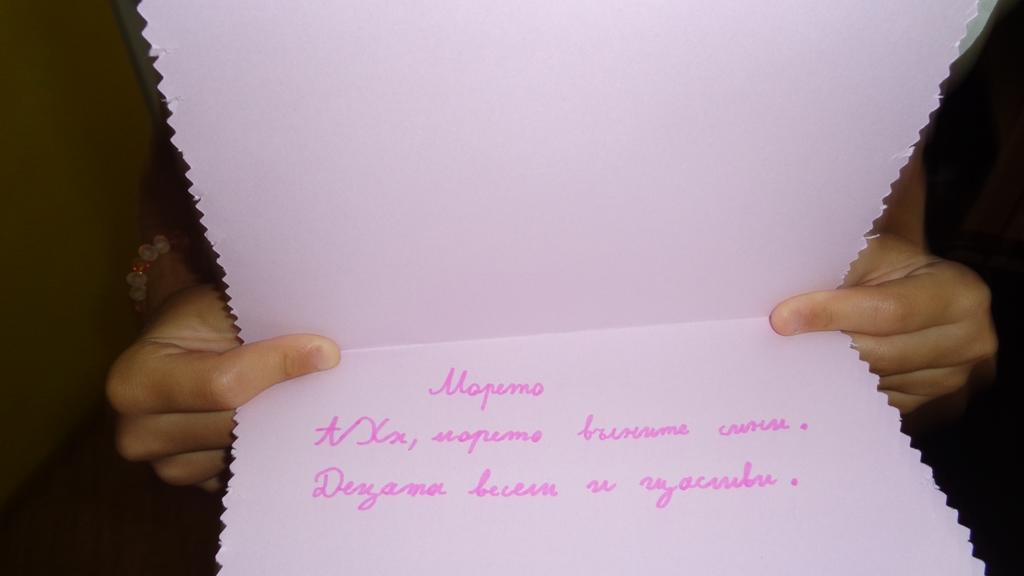 Морето
АХх, морето вълните сини.
Децата весели и щасливи.